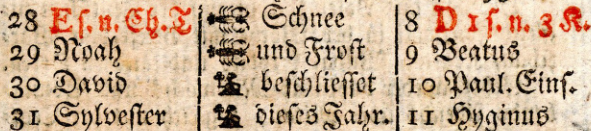 28 E ſ. n. Ch. T Schnee 8 D 1 ſ. n. 3 K.
29 Noah und Froſt 9 Beatus
30 David beſchlieſſet 10 Paul. Einſ.
31 Sylveſter dieſes Jahr. 11 Hyginus